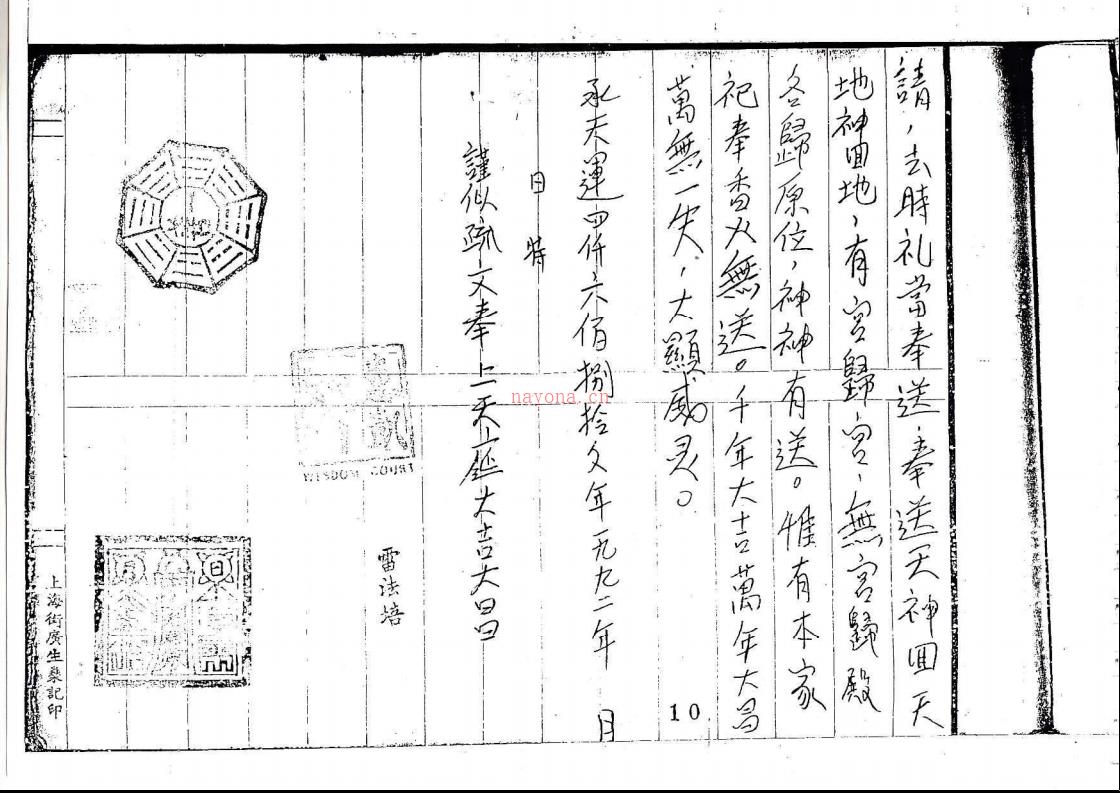 請，去時礼當奉送，奉送天神回天
地神回地，有宮歸宮，無宮歸殿
各歸原位，神神有送。惟有本家
祀奉香火無送。千年大吉萬年大昌
萬無一失，大顯威灵。
承天運四仟六佰捌拾久年一九九二年　月
日　時
謹似疏文奉上天庭大吉大昌
雷法培
10
WISDOM COURT
上海街廣生桑記印
nayona.cn